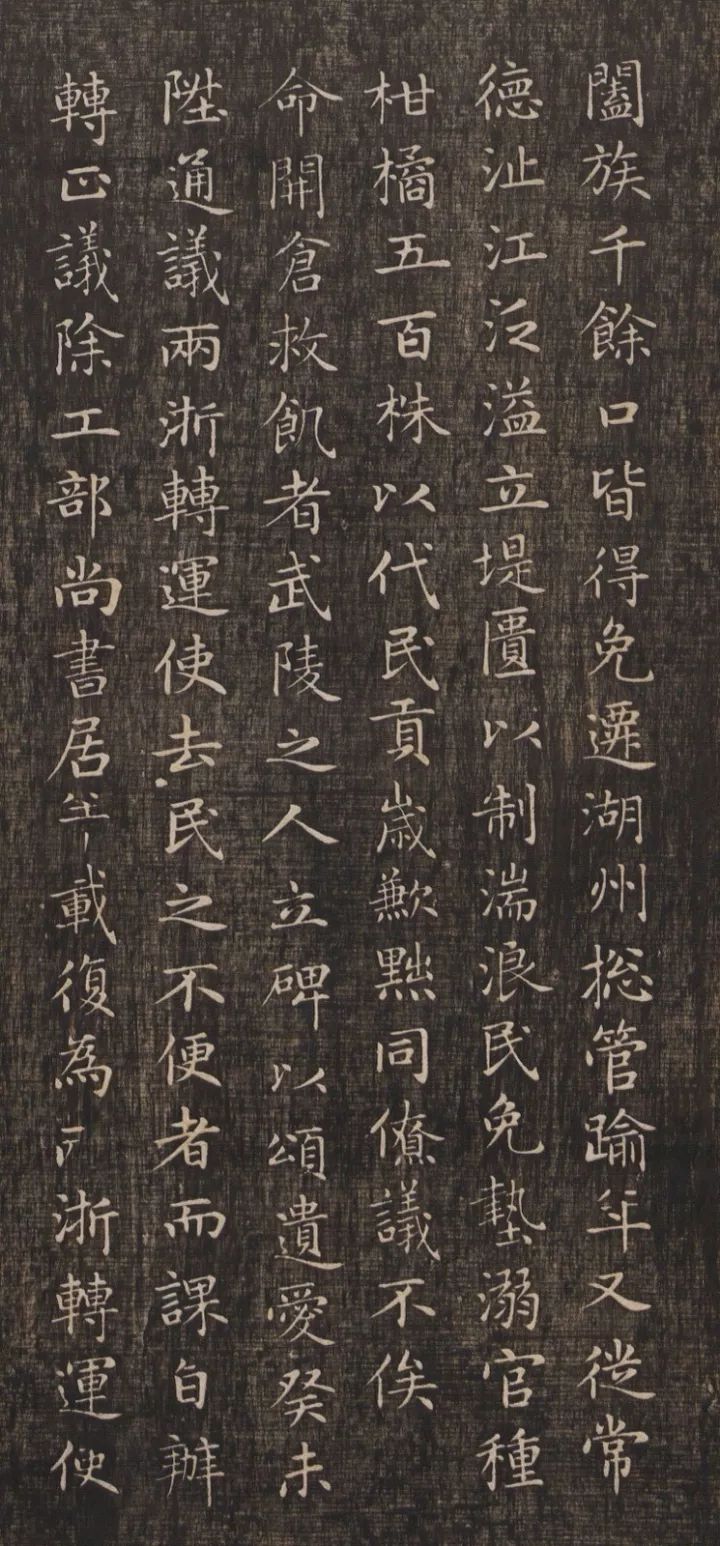 闔族千餘口皆得免遷湖州総管踰年又從常
德沚江泛溢立堤匽以制湍浪民免墊溺官種
柑橘五百株以代民貢歳歉黙同僚議不俟
命開倉救飢者武陵之人立碑以頌遺愛癸未
陞通議兩浙轉運使去民之不便者而課自辦
轉正議除工部尚書居年載復為浙轉運使